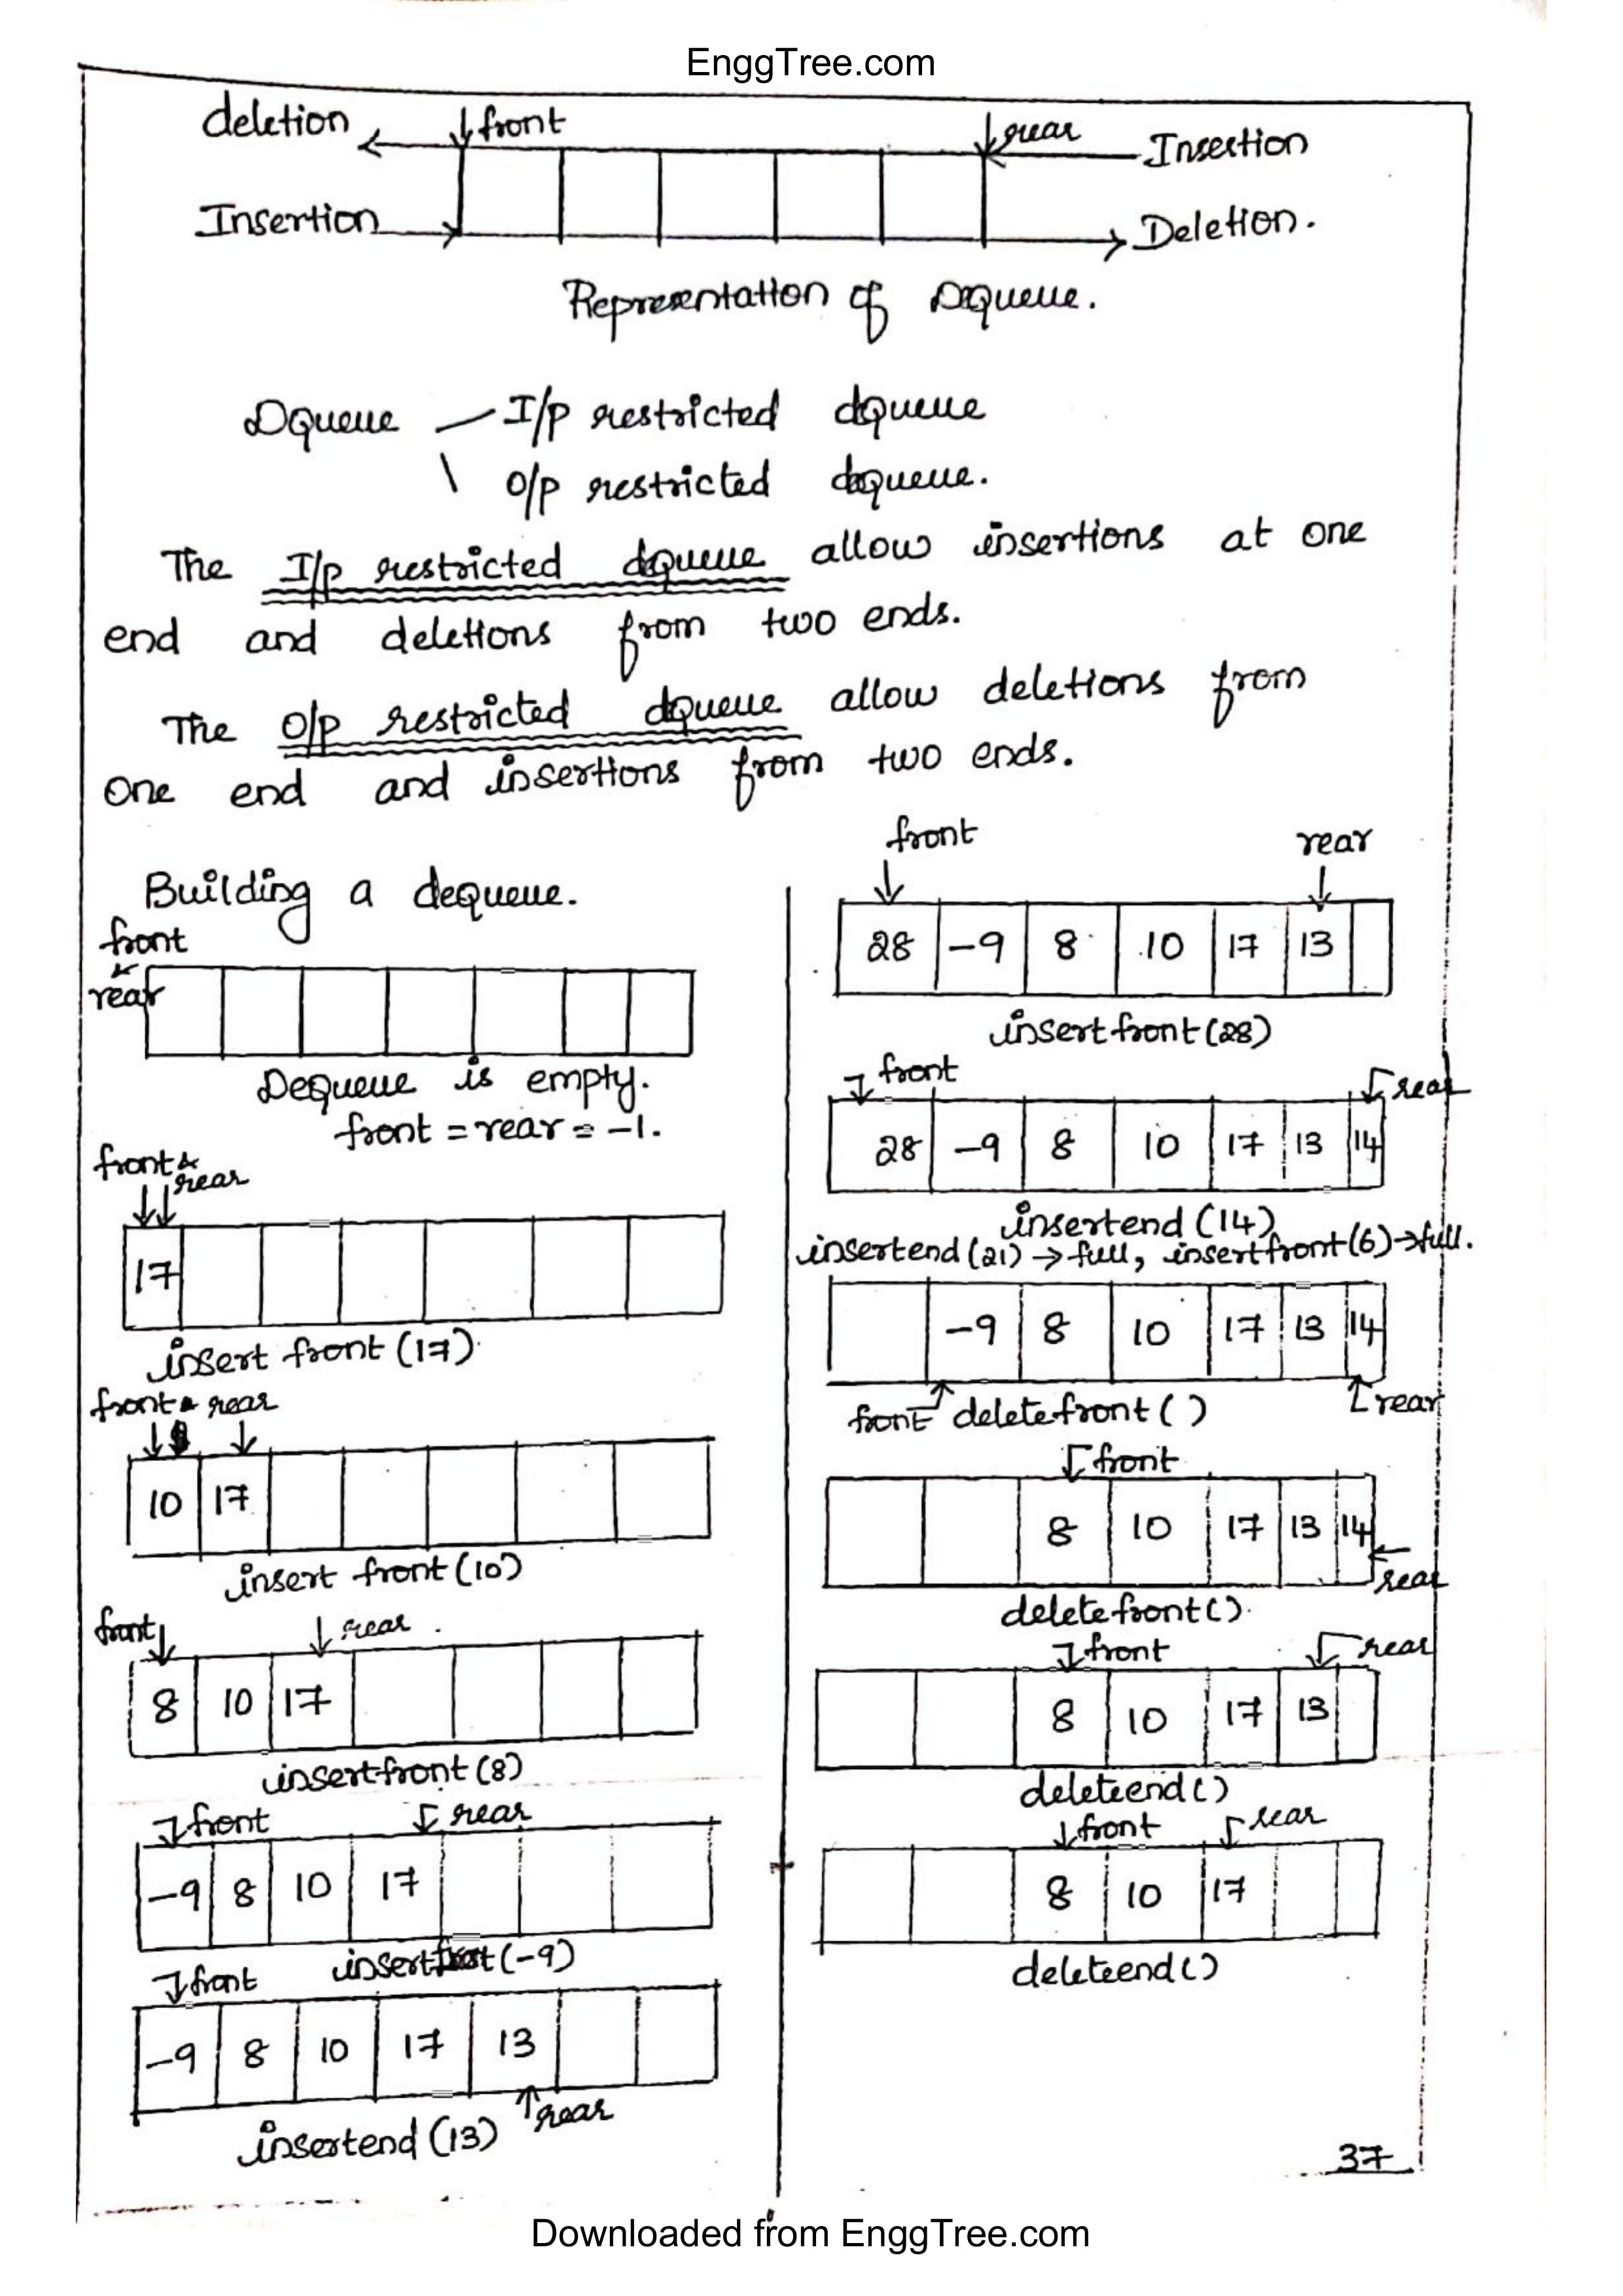 EnggTree.com
deletion front rear Insertion
Insertion Deletion.
Representation of Dqueue.
Dqueue I/p restricted dqueue
O/p restricted dqueue.
The I/p restricted dqueue allow insertions at one
end and deletions from two ends.
The O/p restricted dqueue allow deletions from
one end and insertions from two ends.
Building a dequeue.
front
&
rear
Dequeue is empty.
front = rear = -1.
front &
rear
17
insert front (17).
front & rear
10 17
insert front (10)
front rear
8 10 17
insertfront (8)
front rear
-9 8 10 17
insertfront (-9)
front
-9 8 10 17 13
insertend (13) rear
front rear
28 -9 8 10 17 13
insertfront (28)
front rear
28 -9 8 10 17 13 14
insertend (14)
insertend (21) → full, insertfront (6) → full.
-9 8 10 17 13 14
front deletefront ( ) rear
front
8 10 17 13 14
rear
deletefront ().
front rear
8 10 17 13
deleteend ()
front rear
8 10 17
deleteend ()
37
Downloaded from EnggTree.com